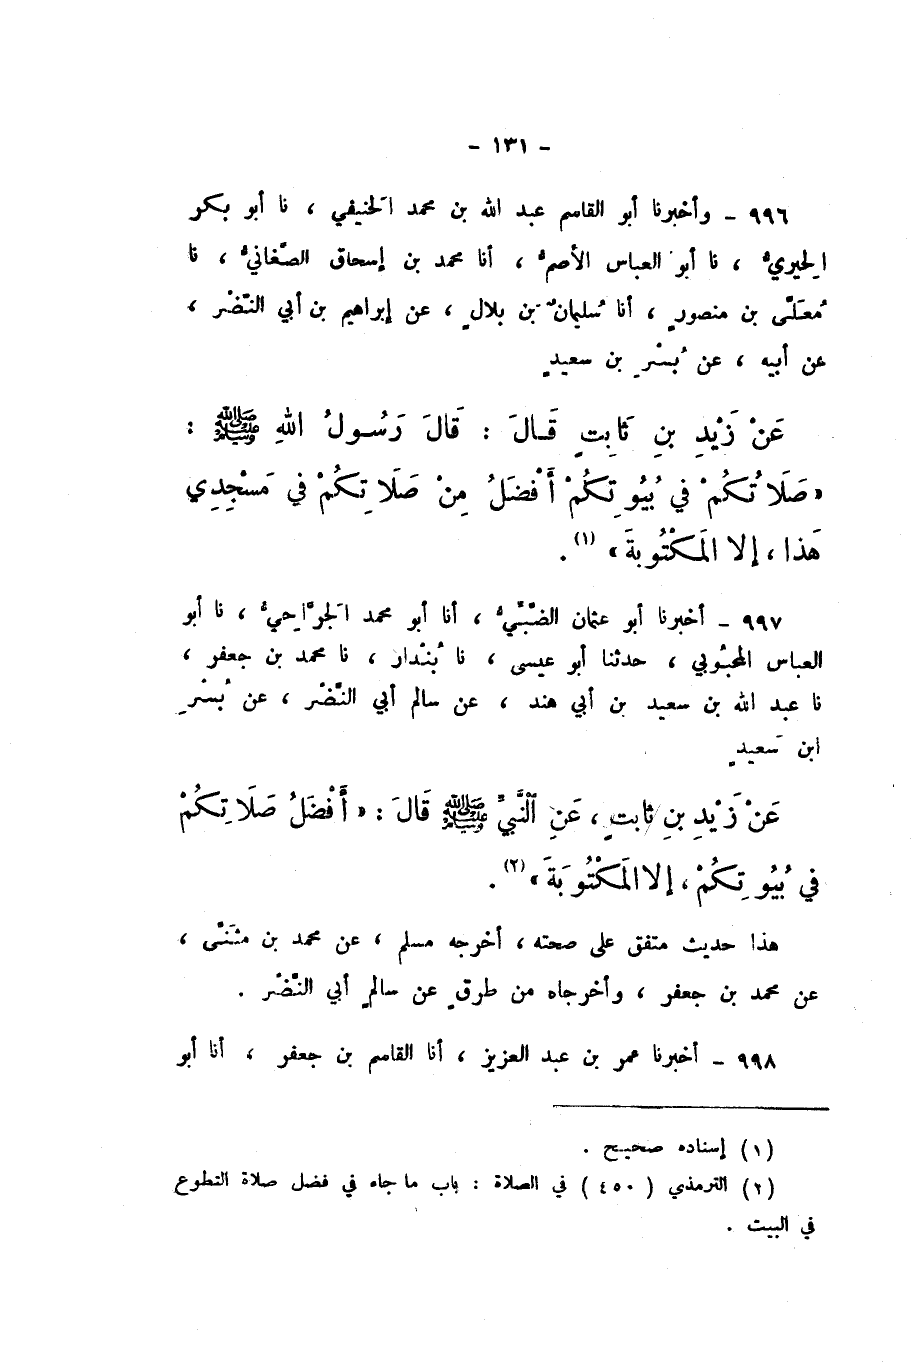 - ١٣١ -
٩٩٦ - وأخبرنا أبو القاسم عبد الله بن محمد الحَنيفي ، نا أبو بكر
الحِيريُّ ، نا أبو العباس الأصمُّ ، أنا محمد بن إسحاق الصَّغانيُّ ، نا
مُعَلَّى بن منصورٍ ، أنا سُليمانُ بن بلالٍ ، عن إبراهيم بن أبي النَّضْر ،
عن أبيه ، عن بُسْرِ بن سعيدٍ
عَنْ زَيْدِ بنِ ثَابِتٍ قَالَ : قَالَ رَسُولُ اللهِ ﷺ :
« صَلَاتُكُمْ في بُيُوتِكُمْ أَفْضَلُ مِنْ صَلَاتِكُمْ في مَسْجِدِي
هَذا ، إلا المَكْتُوبةَ » (١) .
٩٩٧ - أخبرنا أبو عثمان الضَّبِّيُّ ، أنا أبو محمد الجَرَّاحِيُّ ، نا أبو
العباس المحبُوبي ، حدثنا أبو عيسى ، نا بُنْدار ، نا محمد بن جعفر ،
نا عبد الله بن سعيد بن أبي هند ، عن سالم أبي النَّضْر ، عن بُسْرِ
ابن سَعيدٍ
عَنْ زَيْدِ بنِ ثابتٍ ، عَنِ النَّبيِّ ﷺ قَالَ : « أَفْضَلُ صَلَاتِكُمْ
في بُيُوتِكُمْ ، إلا المَكْتُوبَةَ » (٢) .
هذا حديث متفق على صحته ، أخرجه مسلم ، عن محمد بن مثَنَّى ،
عن محمد بن جعفر ، وأخرجاه من طرقٍ عن سالمٍ أبي النَّضْر .
٩٩٨ - أخبرنا عمر بن عبد العزيز ، أنا القاسم بن جعفر ، أنا أبو
(١) إسناده صحيح .
(٢) الترمذي ( ٤٥٠ ) في الصلاة : باب ما جاء في فضل صلاة التطوع
في البيت .